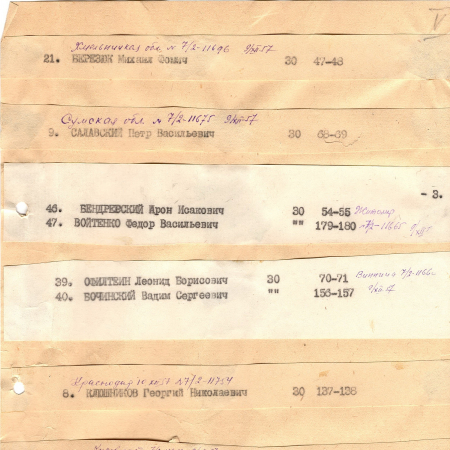 V
Хмельницкая обл. № 7/2-11696 9/XII-57
21. БЕРЕЗЮК Михаил Фомич 30 47-48
Сумская обл. № 7/2-11675 9/XII-57
9. САЛАВСКИЙ Петр Васильевич 30 68-69
- 3.
46. БЕНДРЕВСКИЙ Арон Исакович 30 54-55 Житомир
47. ВОЙТЕНКО Федор Васильевич "" 179-180
39. ОФИЛТЕИН Леонид Борисович 30 70-71 Винница
40. БОЧИНСКИЙ Вадим Сергеевич "" 156-157
Краснодар 10 XII 57 № 7/2-11754
8. КЛЮШНИКОВ Георгий Николаевич 30 137-138